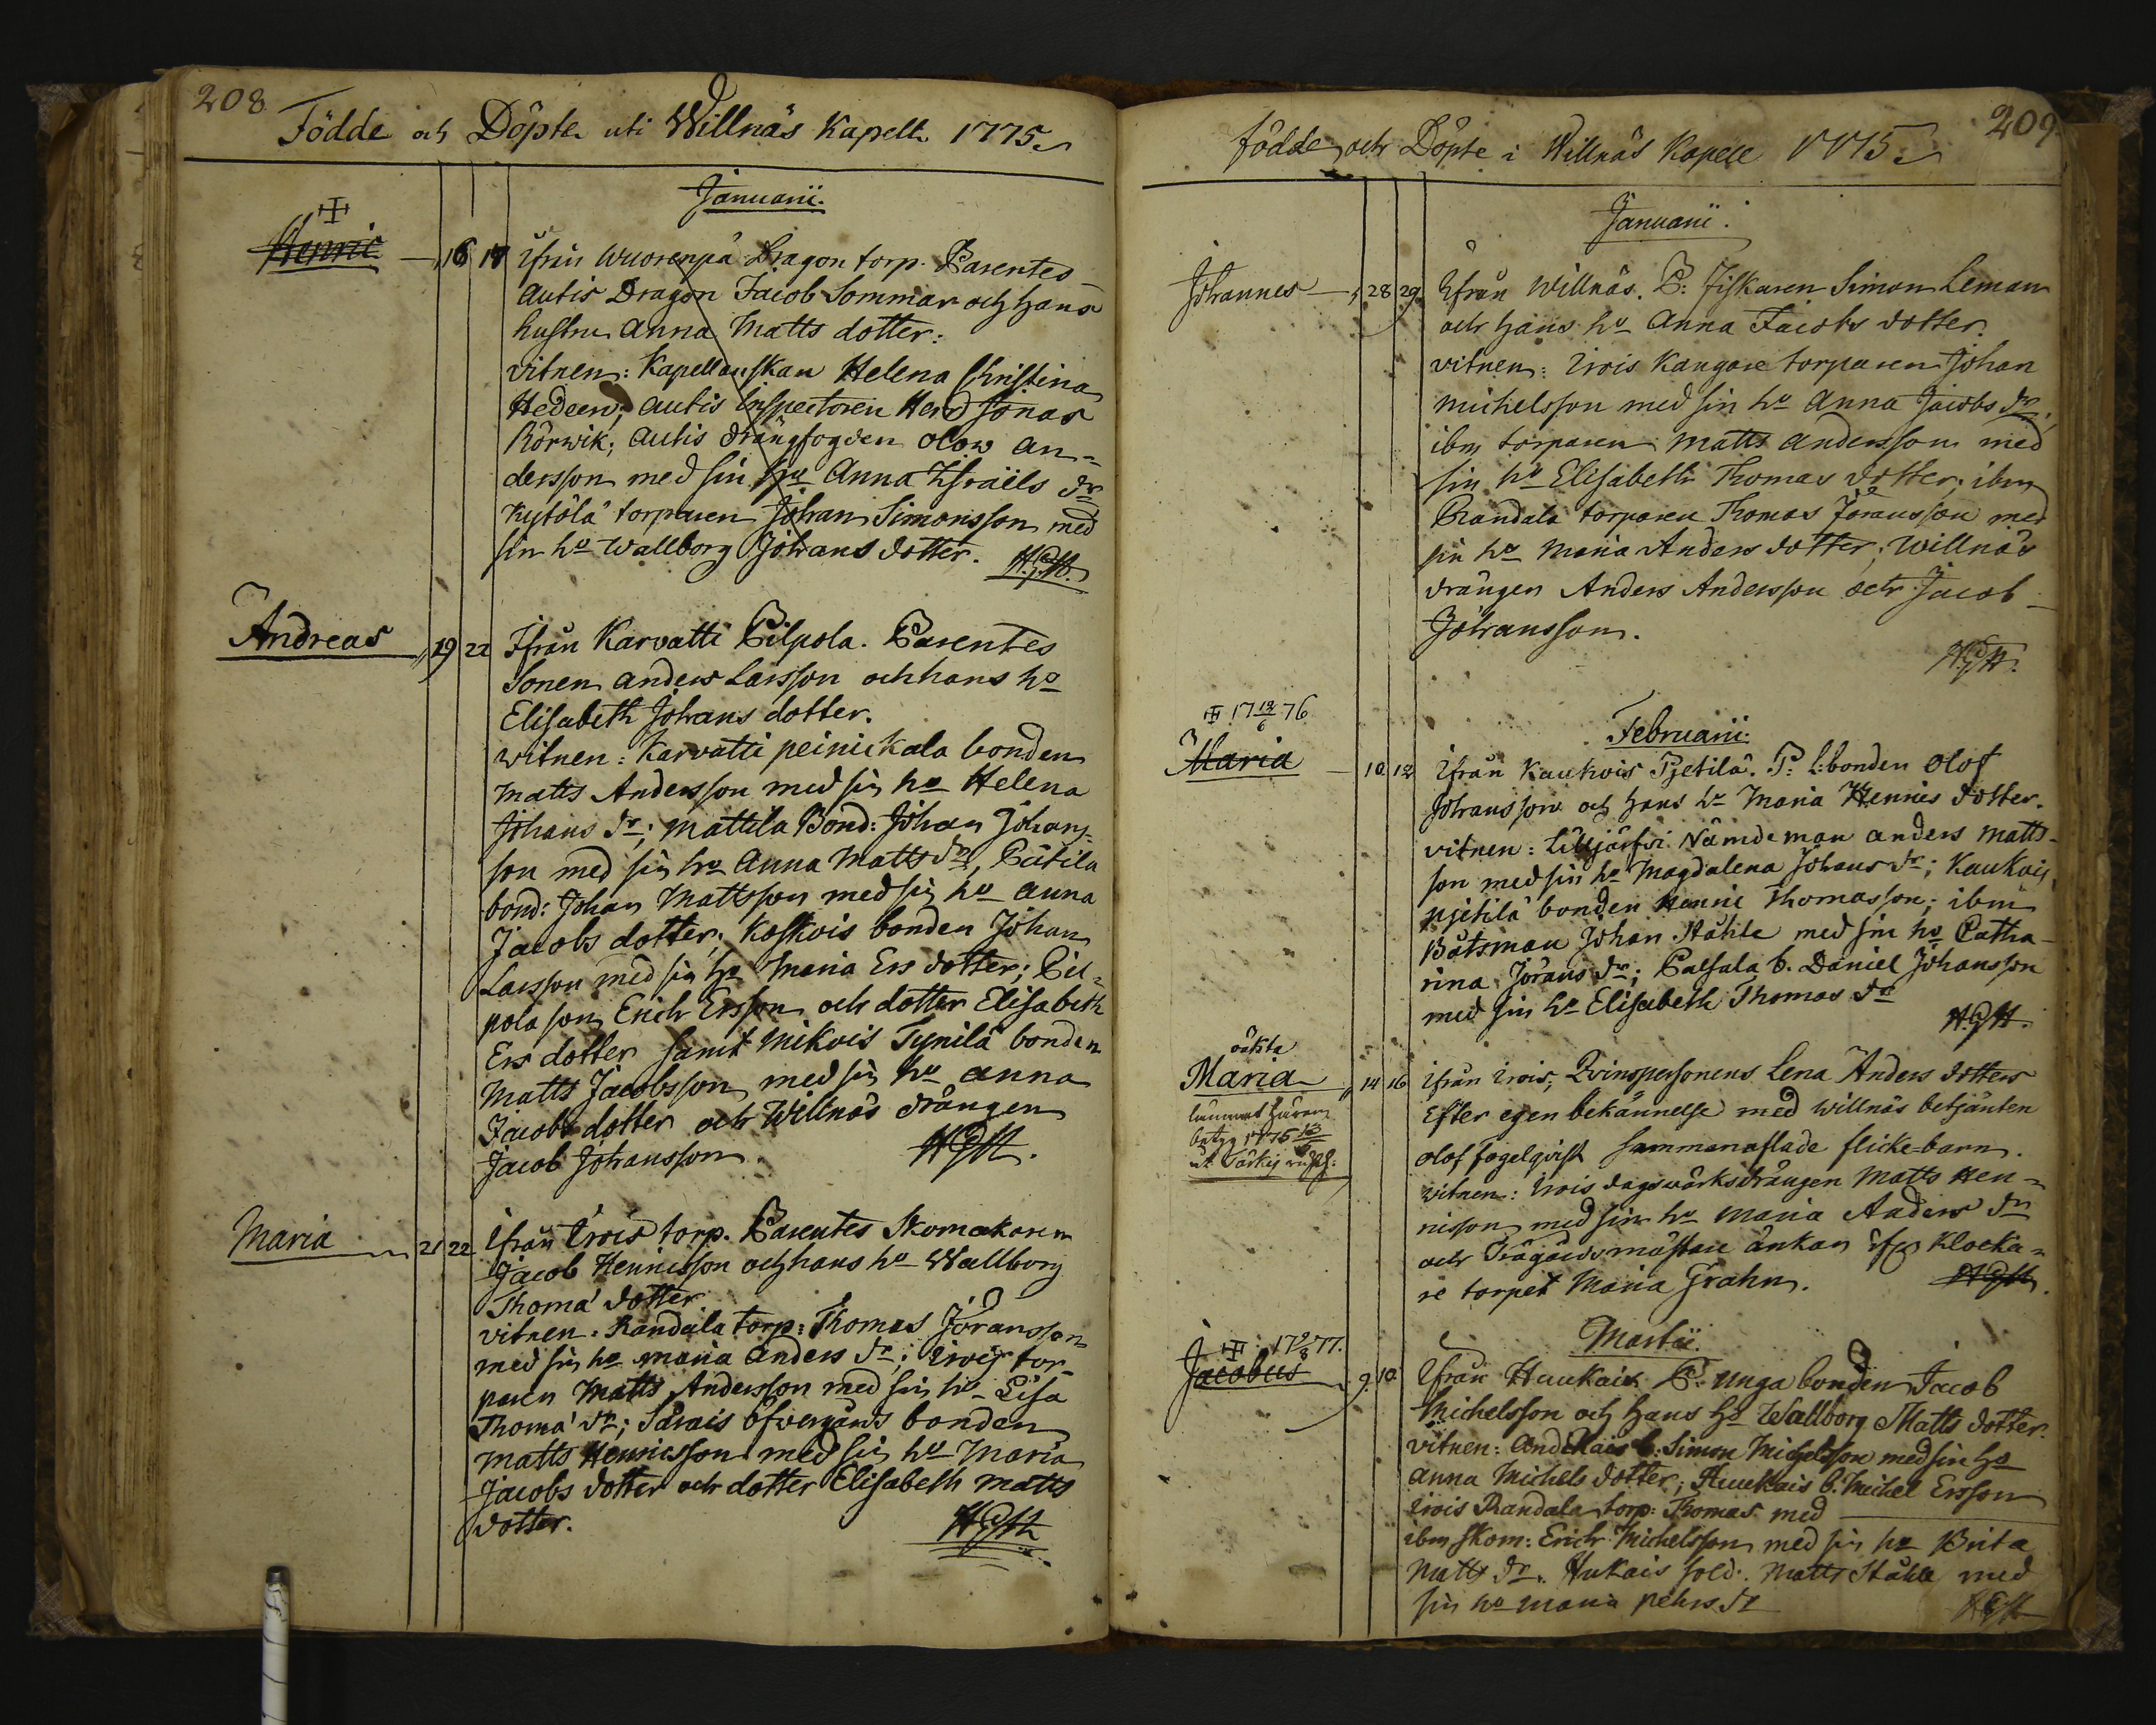 208
Födde och Döpte uti Willnäs Kapell 1775
Januarii.
Henric 16 17 Ifrån Wuorenpä Dragon torp. Parentes
Autis Dragon Jacob Sommar och hans
hustru Anna Matts dotter:
vitnen: Kapellanskan Helena Christina
Hedeen; Autis Inspectoren Herr Jonas
Rörwik; Autis drängfogden Olow An=
dersson med sin hu Anna Israels dr
Kytölä torparen Johan Simonsson med
sin hu Wallborg Johans dotter.
Andreas 19 22 Ifrån Karvatti Pilpola. Parentes
Sonen Anders Larsson och hans hu
Elisabeth Johans dotter.
witnen: Karvatti peinickala bonden
Matts Andersson med sin hu Helena
Johans dr; Mattila Bond: Johan Johans-
son med sin hu Anna Matts dr, Pätilä
bond: Johan Mattsson med sin hu Anna
Jacobs dotter; Koskois bonden Johan
Larsson med sin hu Maria Ers dotter; Pil=
pola son Erich Ersson och dotter Elisabeth
Ers dotter samt Mikois Tynilä bonden
Matts Jacobsson med sin hu Anna
Jacobs dotter och Willnäs drängen
Jacob Johansson.
Maria 21 22 Ifrån Irois torp. Parentes Skomakaren
Jacob Hennicsson och hans hu Wallborg
Thoma dotter
vitnen: Randala torp: Thomas Jöransson
med sin hu Maria Anders dr; Irois tor-
paren Matts Andersson med sin hu Lisa
Thoma dr; Särais öfvergårds bonden
Matts Hennicsson med sin hu Maria
Jacobs dotter och dotter Elisabeth Matts
dotter.
209
födde och Döpte i Willnäs Kapell 1775
Januarii.
Johannes 28 29 Ifrån Willnäs. P: Fiskaren Simon Leman
och hans hu Anna Jacobs dotter.
vitnen: Irois Kangare torparen Johan
Michelsson med sin hu Anna Jacobs dr,
ibm torparen Matts Andersson med
sin hu Elisabeth Thomas dotter; ibm
Randala torparen Thomas Jöransson med
sin hu Maria Anders dotter; Willnäs
drängen Anders Andersson och Jacob
Johansson.
17 12/6 76
Februarii.
Maria 10 12 Ifrån Kaukois Pjetilä. P: L:bonden Olof
Johansson och hans hu Maria Hennics dotter.
vitnen: Nämdeman Anders Matts-
son med sin hu Magdalena Johans dr; Kaukois
pjetilä bonden Henric Thomasson; ibm
Båtsman Johan Ståhle med sin hu Catha-
rina Jörans dr; Palsala b. Daniel Johansson
med sin hu Elisabeth Thomas dr
oäkta
Maria 14 16 Ifrån Irois, Qvinspersonens Lena Anders dotters
Efter egen bekännelse med Willnäs betjänten
Olof fogelqvist sammanaflade flicke-barn.
witnen: Irois dagswärksdrängen Matts Hen=
nisson med sin hu Maria Anders dr
och Trägårdsmästare änkan ifrån Klocka=
re torpet Maria Grahn.
17 77.
Martii.
Jacobus 9. 10. Ifrån Huukais. P. unga bonden Jacob
Michelsson och hans hu Wallborg Matts dotter.
vitnen: Andikais b: Simon Michelsson med sin hu
Anna Michels dotter; Huukais b: Michel Ersson
Irois Randala torp: Thomas med
ibm skom: Erich Michelsson med sin hu Brita
Matts dr. Hukais sold: Matts Ståhle med
sin hu Maria Pehrs dr